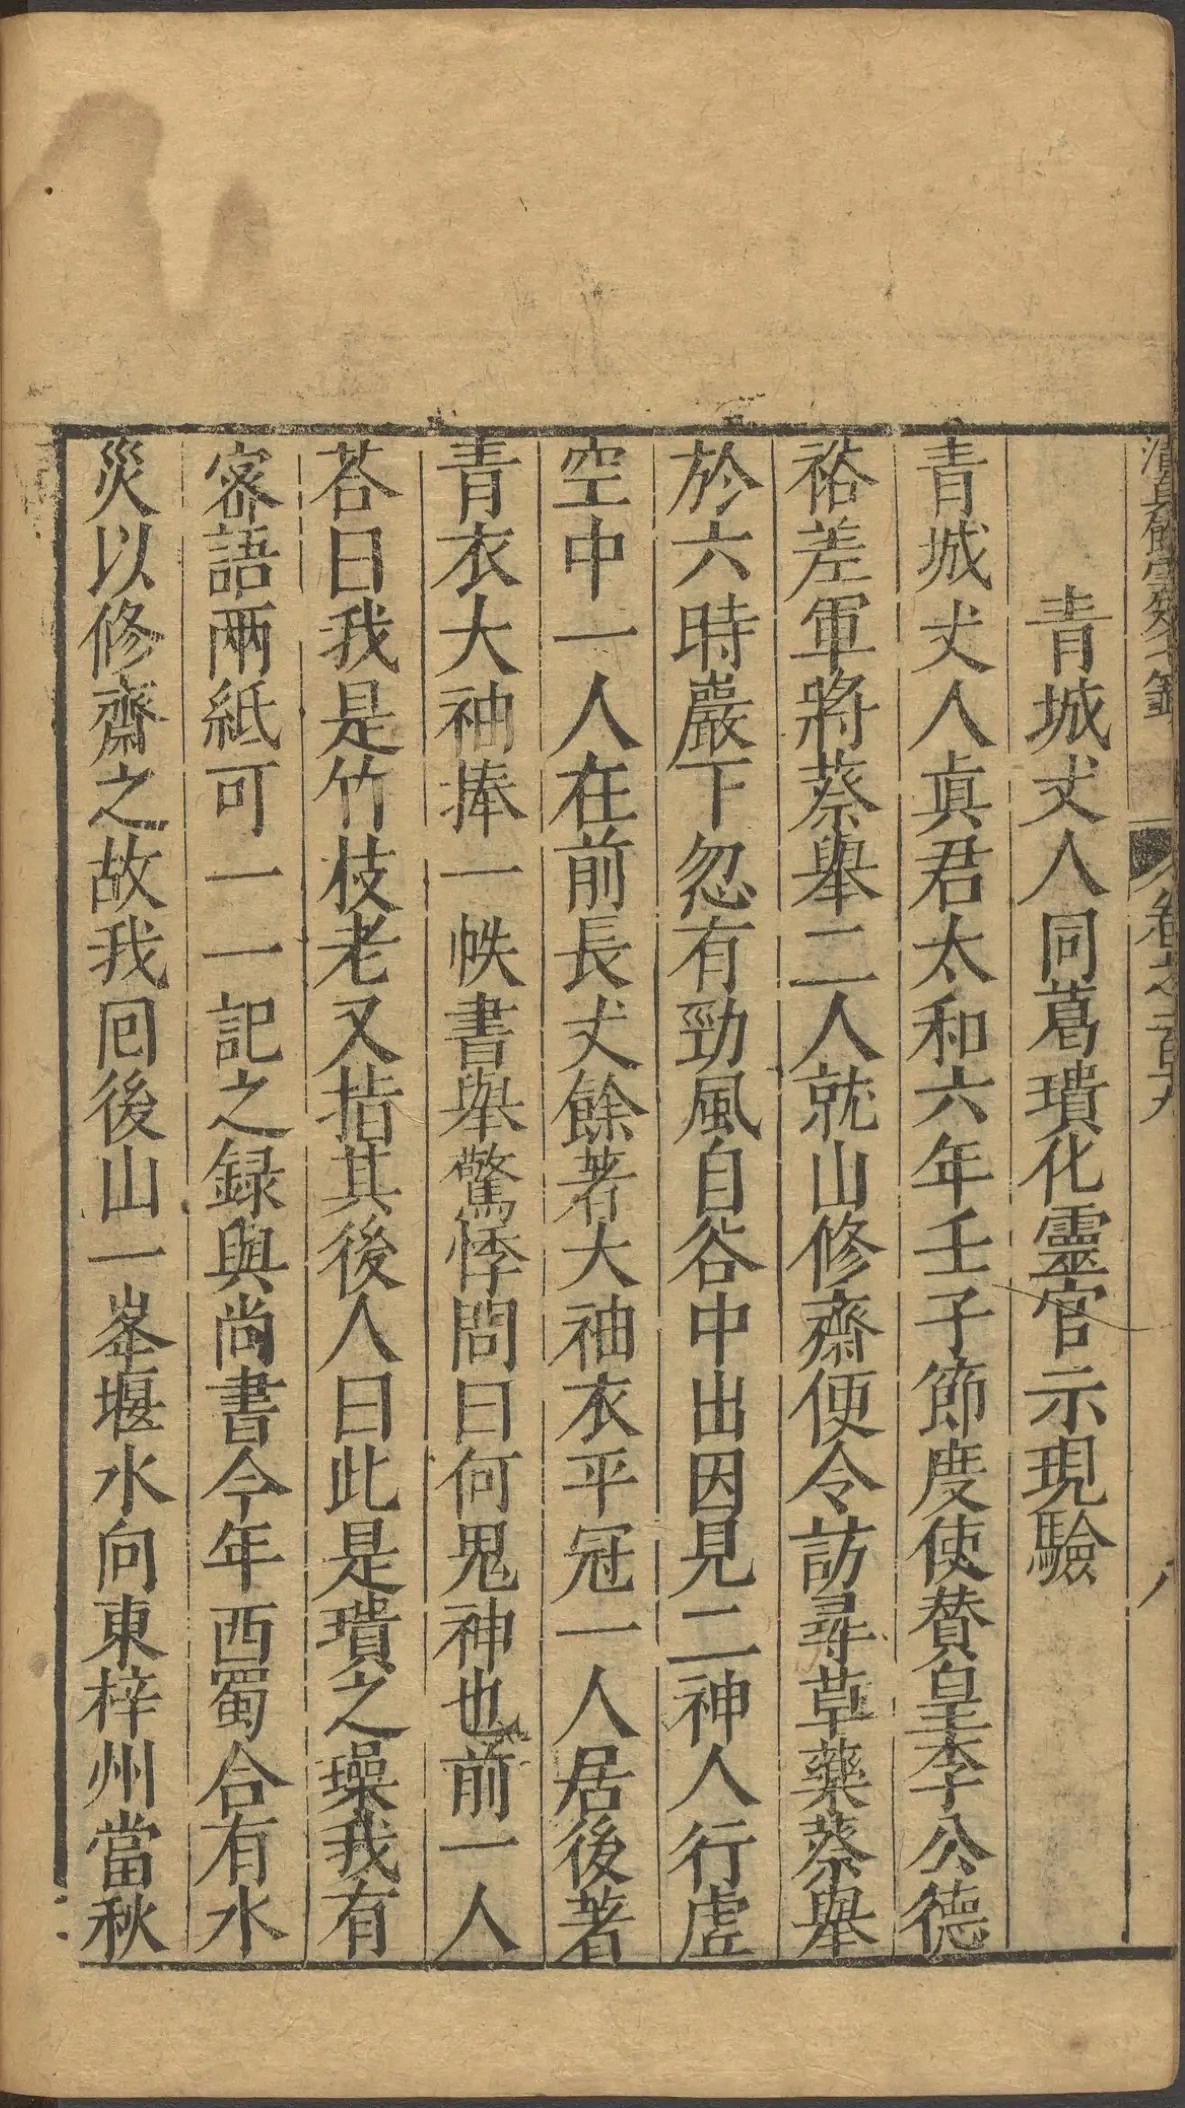 青城丈人同葛璝化靈官示現驗
青城丈人眞君太和六年壬子節度使賛皇李公德
裕差軍將蔡舉二人就山修齋便令訪尋草藥蔡舉
於六時巖下忽有勁風自谷中出因見二神人行虛
空中一人在前長丈餘著大袖衣平冠一人居後著
青衣大袖捧一帙書舉驚悸問曰何鬼神也前一人
荅曰我是竹枝老又指其後人曰此是璝之璪我有
密語兩紙可一一記之録與尚書今年西蜀合有水
災以修齋之故我囘後山一峯堰水向東梓州當秋